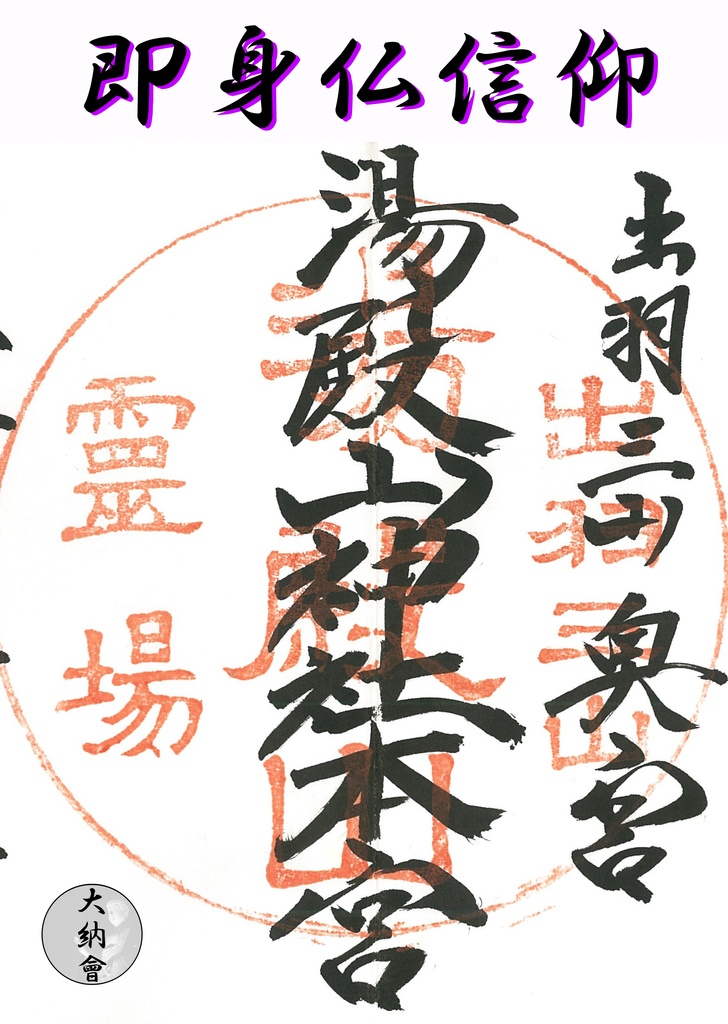 即身仏信仰
出羽三山奥宮
湯殿山神社本宮
出羽三山
湯殿山
靈場
大納會